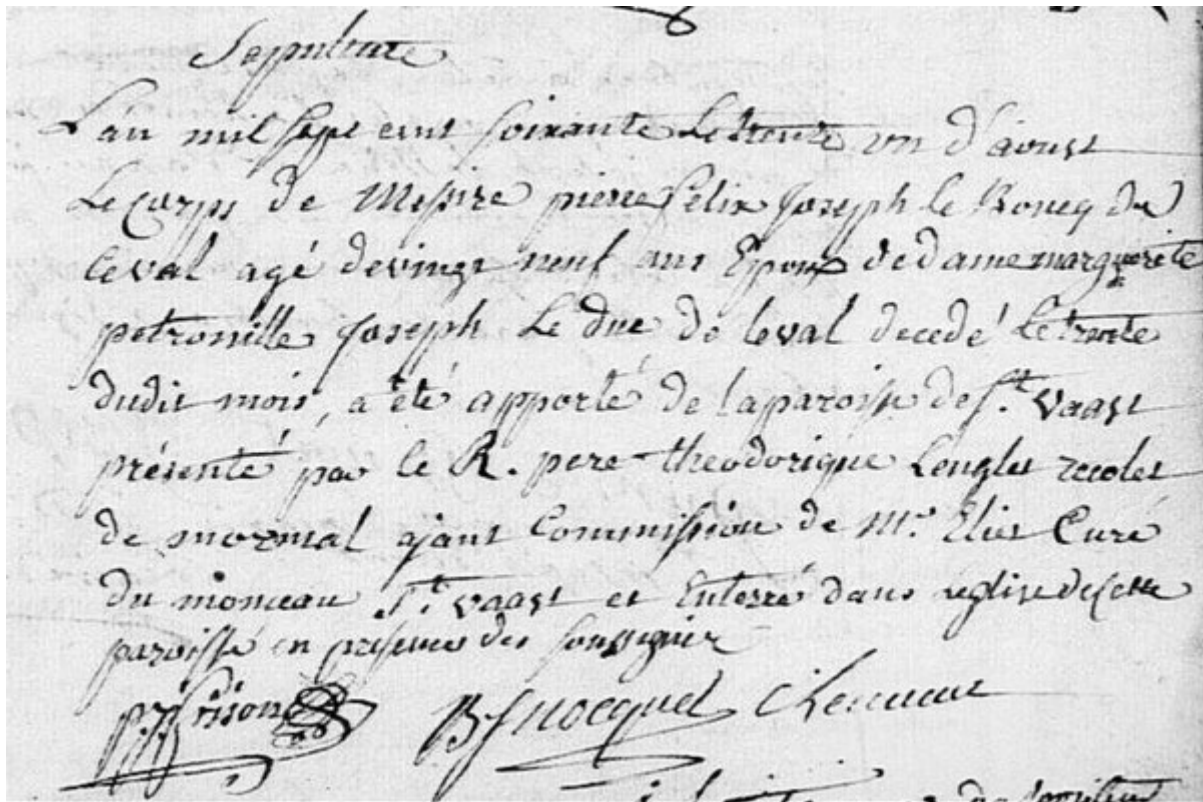 Sepulture
L'an mil sept cent soixante Le trente un d'aoust
Le Corps de Messire pierre felix Joseph le Boucq du
leval agé de vingt neuf ans Epoux de dame marguerite
petronille Joseph Le duc de leval decedé Le trente
dudit mois, a été apporté de la paroisse de St. Vaast
présenté par le R. pere theodorique Lenglet recolet
de mormal ajant Commission de Mr. Eliet Curé
du monceau St. vaast et Enterré dans l'eglise de Cette
paroisse en presence des soussignez